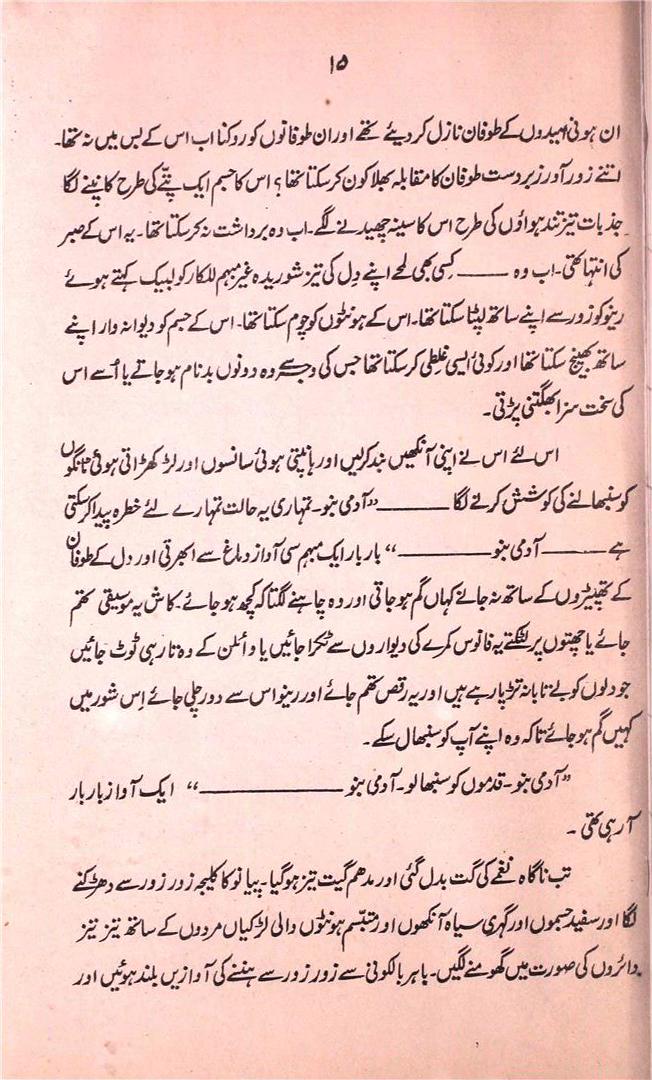 ۱۵
ان ہونی امیدوں کے طوفان نازل کر دیئے تھے اور ان طوفانوں کو روکنا اب اس کے بس میں نہ تھا۔
اتنے زور آور زبردست طوفان کا مقابلہ بھلا کون کر سکتا تھا؟ اس کا جسم ایک پتّے کی طرح کانپنے لگا
جذبات تیز تند ہواؤں کی طرح اس کا سینہ چھیدنے لگے۔ اب وہ برداشت نہ کر سکتا تھا۔ یہ اس کے صبر
کی انتہا تھی۔ اب وہ ——— کِسی بھی لمحے اپنے دِل کی تیز شوریدہ غیر مبہم للکار کو لبیک کہتے ہوئے
رینو کو زور سے اپنے ساتھ لپٹا سکتا تھا۔ اس کے ہونٹوں کو چوم سکتا تھا۔ اس کے جسم کو دیوانہ وار اپنے
ساتھ بھینچ سکتا تھا اور کوئی ایسی غلطی کر سکتا تھا جس کی وجہ سے وہ دونوں بدنام ہو جاتے یا اُسے اس
کی سخت سزا بھگتنی پڑتی۔
اس لئے اس نے اپنی آنکھیں بند کر لیں اور ہانپتی ہوئی سانسوں اور لڑکھڑاتی ہوئی ٹانگوں
کو سنبھالنے کی کوشش کرنے لگا ——— ”آدمی بنو۔ تمہاری یہ حالت تمہارے لئے خطرہ پیدا کر سکتی
ہے ——— آدمی بنو ———“ بار بار ایک مبہم سی آواز دماغ سے ابھرتی اور دل کے طوفان
کے تھپیڑوں کے ساتھ نہ جانے کہاں گم ہو جاتی اور وہ چاہنے لگتا کہ کچھ ہو جائے۔ کاش یہ موسیقی تھم
جائے یا چھتوں پر لٹکتے یہ فانوس کمرے کی دیواروں سے ٹکرا جائیں یا وائلن کے وہ تار ہی ٹوٹ جائیں
جو دلوں کو بے تابانہ تڑپا رہے ہیں اور یہ رقص تھم جائے اور رینو اس سے دور چلی جائے اِس شور میں
کہیں گم ہو جائے تاکہ وہ اپنے آپ کو سنبھال سکے۔
”آدمی بنو۔ قدموں کو سنبھالو۔ آدمی بنو ———“ ایک آواز بار بار
آرہی تھی۔
تب ناگاہ نغمے کی گت بدل گئی اور مدھم گیت تیز ہو گیا۔ پیانو کا کلیجہ زور زور سے دھڑکنے
لگا اور سفید جسموں اور گہری سیاہ آنکھوں اور متبسّم ہونٹوں والی لڑکیاں مردوں کے ساتھ تیز تیز
دائروں کی صورت میں گھومنے لگیں۔ باہر بالکونی سے زور زور سے ہنسنے کی آوازیں بلند ہوئیں اور